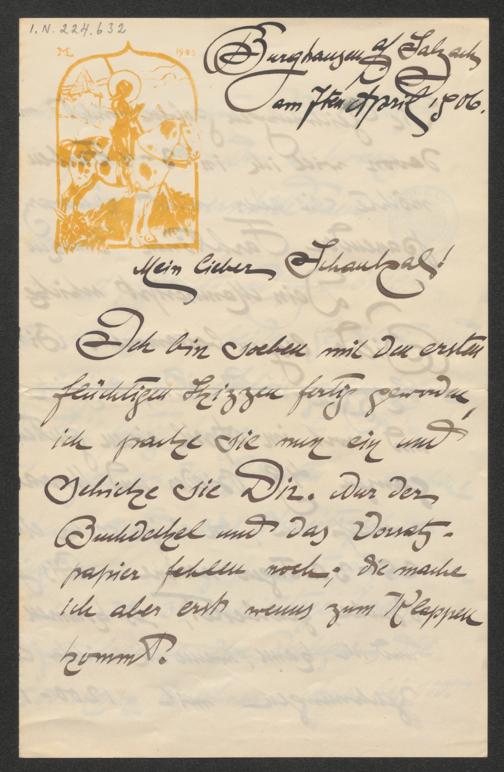 I.N. 224.632
M 1903
Burghausen a/ Salzach
am 7ten April 1906.
Mein lieber Schaukal!
Ich bin soeben mit den ersten
flüchtigen Skizzen fertig geworden,
ich packe sie nun ein und
schicke sie Dir. Nur der
Buchdeckel und das Vorsatz-
papier fehlen noch; die mache
ich aber erst wenns zum Klappen
kommt.